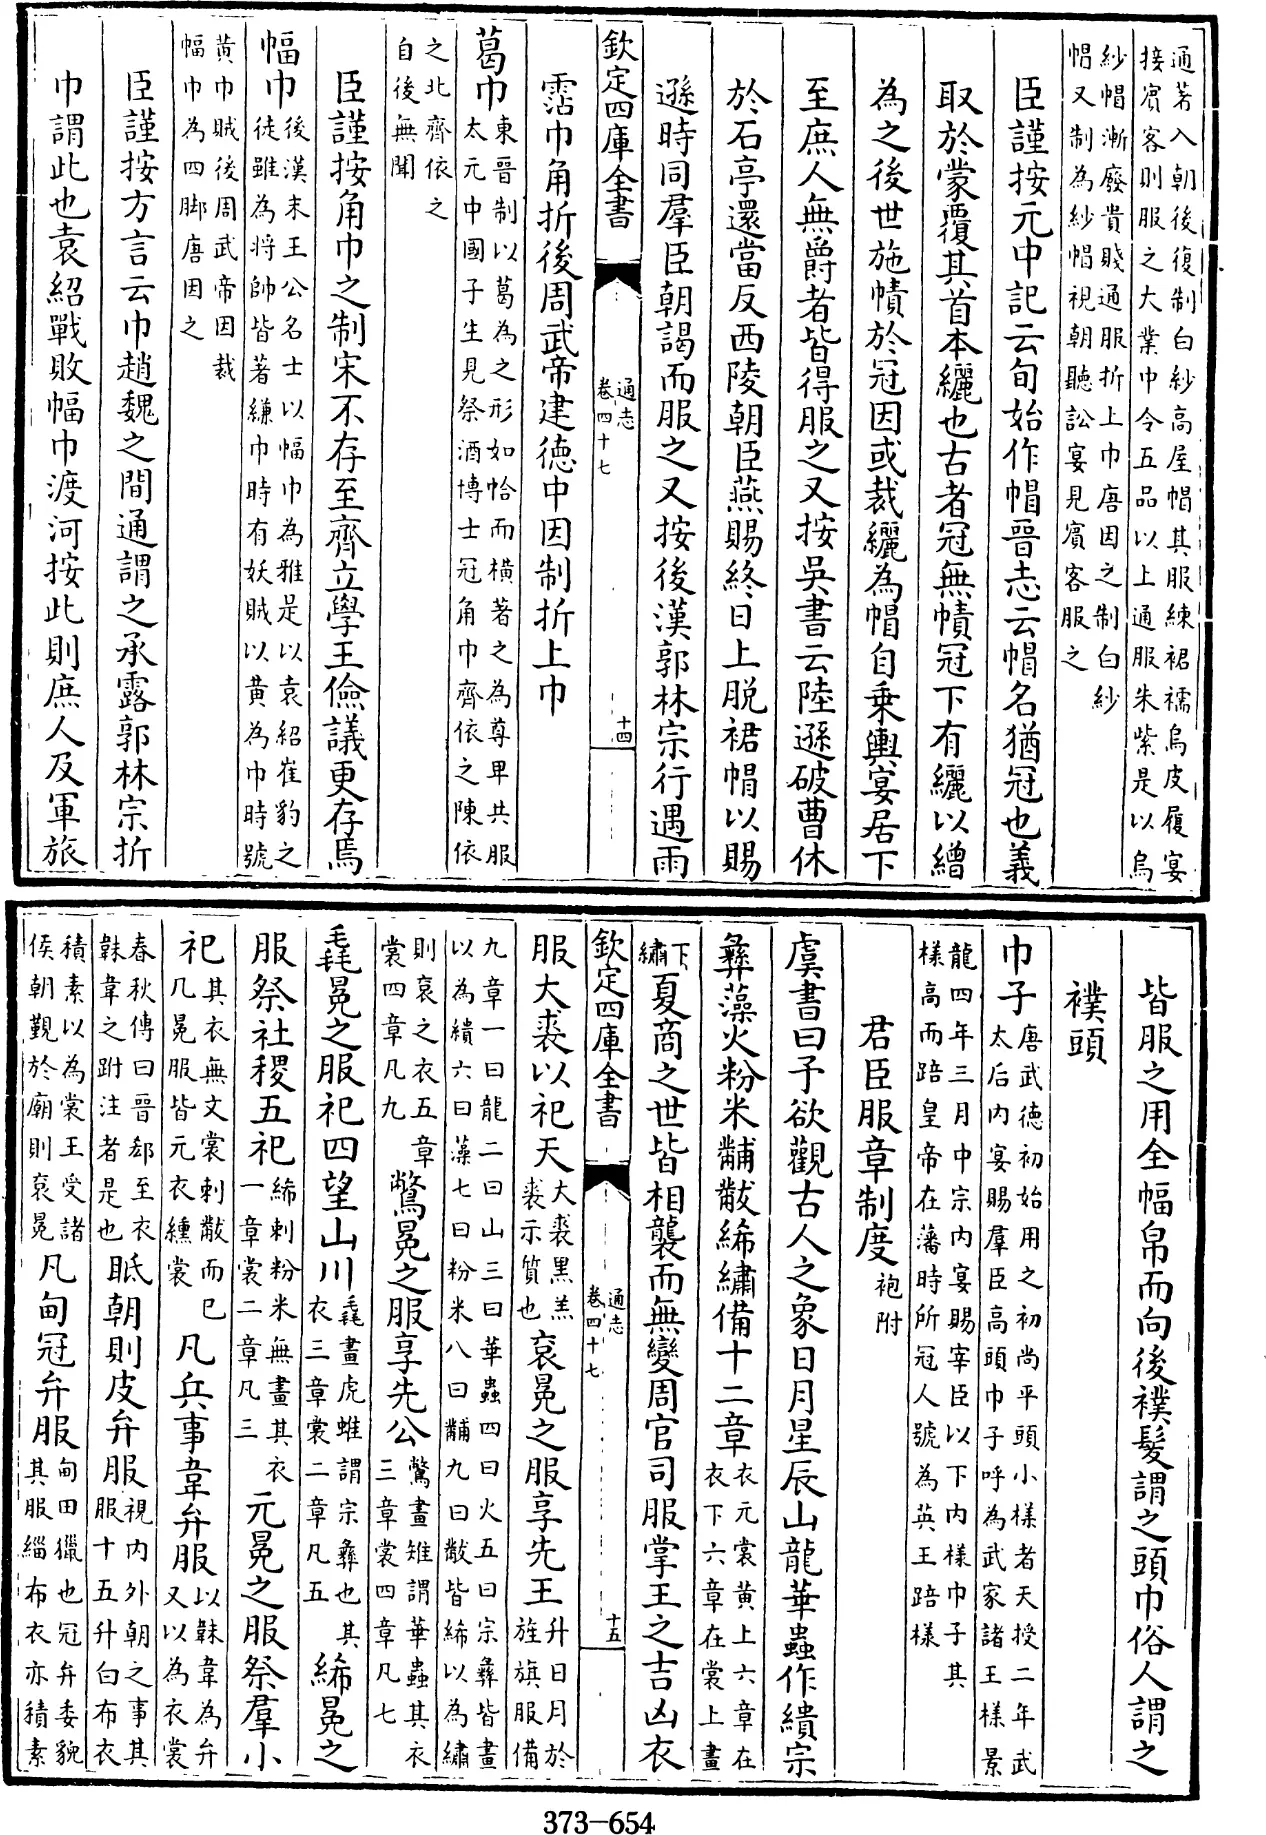 通著入朝後復制白紗高屋帽其服練裙襦烏皮履宴
接賓客則服之大業中令五品以上通服朱紫是以烏
紗帽漸廢貴賤通服折上巾唐因之制白紗
帽又制為紗帽視朝聽訟宴見賓客服之
臣謹按元中記云旬始作帽晉志云帽名猶冠也義
取於蒙覆其首本纚也古者冠無幘冠下有纚以繒
為之後世施幘於冠因或裁纚為帽自乗輿宴居下
至庶人無爵者皆得服之又按吳書云陸遜破曹休
於石亭還當反西陵朝臣燕賜終日上脱裙帽以賜
遜時同羣臣朝謁而服之又按後漢郭林宗行遇雨
欽定四庫全書
通志
卷四十七
十四
霑巾角折後周武帝建德中因制折上巾
葛巾東晉制以葛為之形如帢而橫著之為尊卑共服
太元中國子生見祭酒博士冠角巾齊依之陳依
之北齊依之
自後無聞
臣謹按角巾之制宋不存至齊立學王儉議更存焉
幅巾後漢末王公名士以幅巾為雅是以袁紹崔豹之
徒雖為將帥皆著縑巾時有妖賊以黃為巾時號
黃巾賊後周武帝因裁
幅巾為四脚唐因之
臣謹按方言云巾趙魏之間通謂之承露郭林宗折
巾謂此也袁紹戰敗幅巾渡河按此則庶人及軍旅
皆服之用全幅帛而向後襆髮謂之頭巾俗人謂之
襆頭
巾子唐武德初始用之初尚平頭小樣者天授二年武
太后内宴賜羣臣高頭巾子呼為武家諸王樣景
龍四年三月中宗内宴賜宰臣以下内樣巾子其
樣高而踣皇帝在藩時所冠人號為英王踣樣
君臣服章制度袍附
虞書曰予欲觀古人之象日月星辰山龍華蟲作繢宗
彝藻火粉米黼黻絺繡備十二章衣元裳黄上六章在
衣下六章在裳上畫
下繡夏商之世皆相襲而無變周官司服掌王之吉凶衣
欽定四庫全書
通志
卷四十七
十五
服大裘以祀天大裘黑羔
裘示質也衮冕之服享先王升日月於
旌旗服備
九章一曰龍二曰山三曰華蟲四曰火五曰宗彝皆畫
以為繢六曰藻七曰粉米八曰黼九曰黻皆絺以為繡
則衮之衣五章
裳四章凡九鷩冕之服享先公鷩畫雉謂華蟲其衣
三章裳四章凡七
毳冕之服祀四望山川毳畫虎蜼謂宗彝也其
衣三章裳二章凡五絺冕之
服祭社稷五祀絺刺粉米無畫其衣
一章裳二章凡三元冕之服祭羣小
祀其衣無文裳刺黻而已
凡冕服皆元衣纁裳凡兵事韋弁服以韎韋為弁
又以為衣裳
春秋傳曰晉郤至衣
韎韋之跗注者是也眂朝則皮弁服視内外朝之事其
服十五升白布衣
積素以為裳王受諸
侯朝覲於廟則衮冕凡甸冠弁服甸田獵也冠弁委貌
其服緇布衣亦積素
373-654